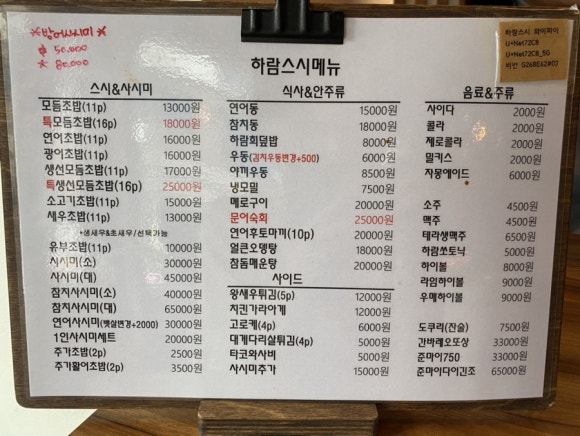 ※방어사시미※
中 50.000
大 80.000
하람스시 와이파이
U+Net72C8
U+Net72C8_5G
비번 G268E62#0J
하람스시메뉴
스시&사시미
모듬초밥(11p) 13000원
특모듬초밥(16p) 18000원
연어초밥(11p) 16000원
광어초밥(11p) 16000원
생선모듬초밥(11p) 17000원
특생선모듬초밥(16p) 25000원
소고기초밥(11p) 15000원
새우초밥(11p) 13000원
*생새우&초새우/선택가능
유부초밥(11p) 10000원
사시미(소) 30000원
사시미(대) 45000원
참치사시미(소) 40000원
참치사시미(대) 65000원
연어사시미(뱃살변경+2000) 30000원
1인사시미세트 20000원
추가초밥(2p) 2500원
추가활어초밥(2p) 3500원
식사&안주류
연어동 15000원
참치동 18000원
하람회덮밥 8000원
우동(김치우동변경+500) 6000원
야끼우동 8500원
냉모밀 7500원
메로구이 20000원
문어숙회 25000원
연어후토마끼(10p) 20000원
얼큰오뎅탕 18000원
참돔매운탕 20000원
사이드
왕새우튀김(5p) 12000원
치킨가라아게 12000원
고로케(4p) 6000원
대게다리살튀김(4p) 5000원
타코와사비 5000원
사시미추가 15000원
음료&주류
사이다 2000원
콜라 2000원
제로콜라 2000원
밀키스 2000원
자몽에이드 6000원
소주 4500원
맥주 4500원
테라생맥주 6500원
하람쏘토닉 5000원
하이볼 8000원
라임하이볼 9000원
우메하이볼 9000원
도쿠리(잔술) 7500원
간바레오또상 33000원
준마이750 33000원
준마이다이긴조 65000원